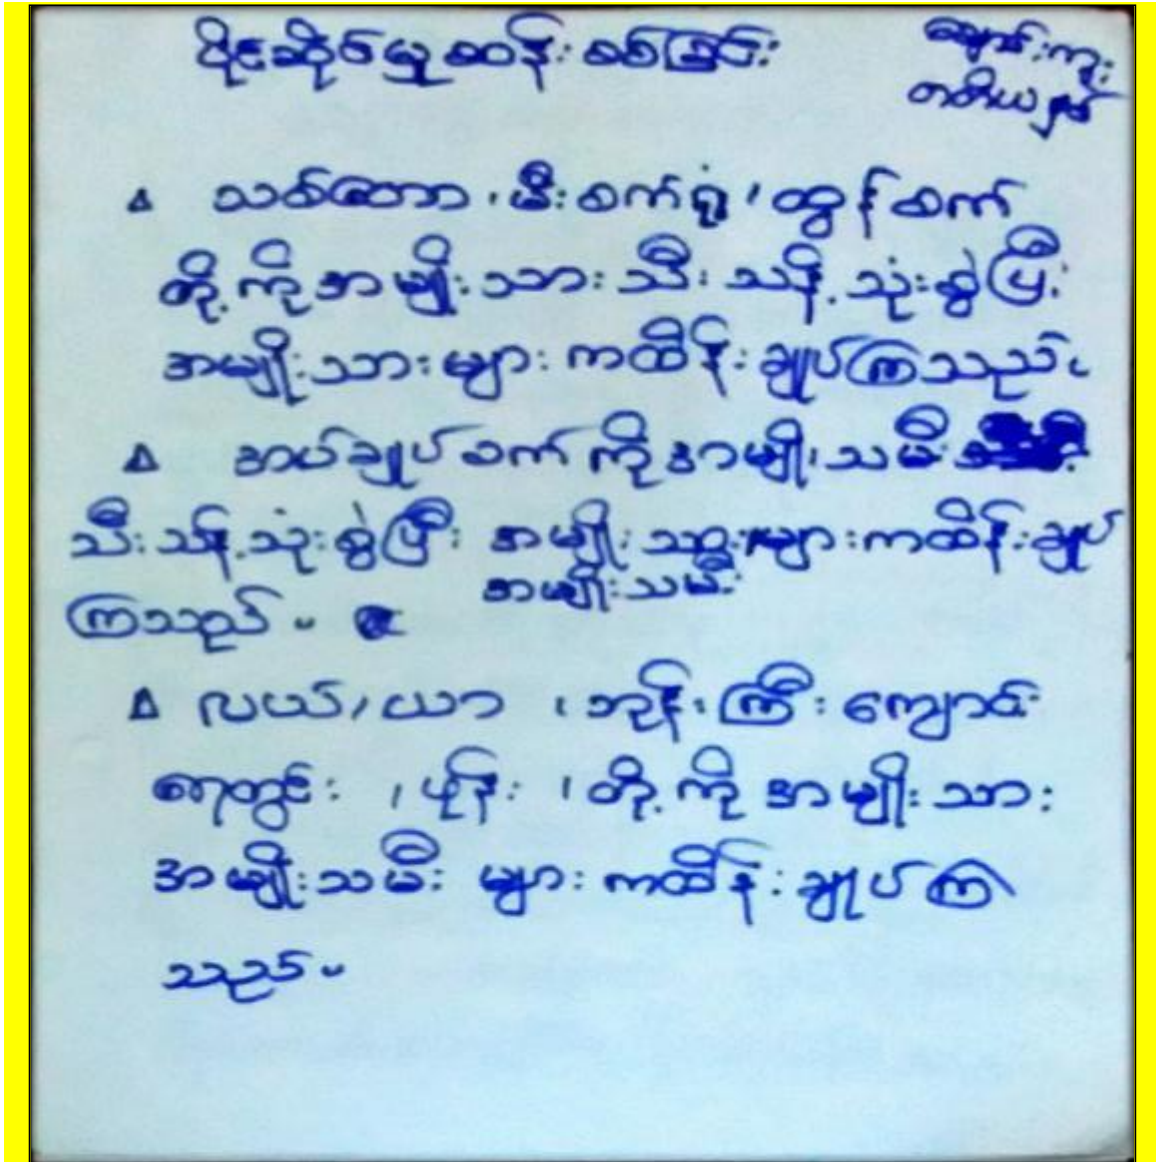 ပိုင်ဆိုင်မှုဆန်းစစ်ခြင်း
ချောင်းကူး
တတိယနှစ်
∆ သစ်တော ၊ မီးစက်ရုံ ၊ ထွန်စက်
တို့ကိုအမျိုးသားသီးသန့်သုံးစွဲပြီး
အမျိုးသားများကထိန်းချုပ်ကြသည်။
∆ အပ်ချုပ်စက်ကိုအမျိုးသမီး
သီးသန့်သုံးစွဲပြီး အမျိုးသားများကထိန်းချုပ်
အမျိုးသမီး
ကြသည်။
∆ လယ်/ယာ ၊ ဘုန်းကြီးကျောင်း
ရေတွင်း ၊ ဖုန်း ၊ တို့ကိုအမျိုးသား
အမျိုးသမီးများကထိန်းချုပ်ကြ
သည်။